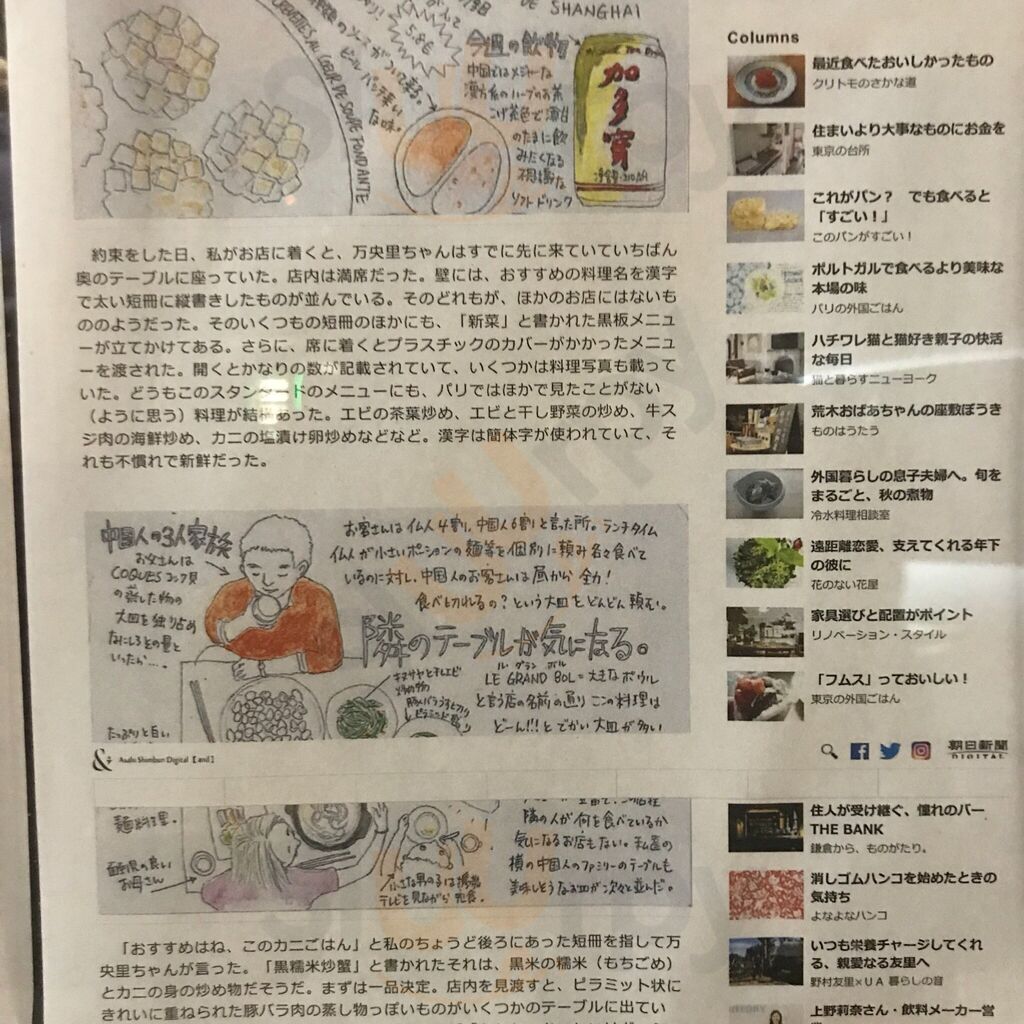 DE SHANGHAI
5.8€
今週の飲物
中国ではメジャーな
漢方系のハーブのお茶
こげ茶色で薄甘
のたまに飲
みたくなる
不思議な
ソフトドリンク
加多寶
約束をした日、私がお店に着くと、万央里ちゃんはすでに先に来ていていちばん
奥のテーブルに座っていた。店内は満席だった。壁には、おすすめの料理名を漢字
で太い短冊に縦書きしたものが並んでいる。そのどれもが、ほかのお店にはないも
ののようだった。そのいくつもの短冊のほかにも、「新菜」と書かれた黒板メニュ
ーが立てかけてある。さらに、席に着くとプラスチックのカバーがかかったメニュ
ーを渡された。開くとかなりの数が記載されていて、いくつかは料理写真も載って
いた。どうもこのスタンダードのメニューにも、パリではほかで見たことがない
（ように思う）料理が結構あった。エビの茶葉炒め、エビと干し野菜の炒め、牛ス
ジ肉の海鮮炒め、カニの塩漬け卵炒めなどなど。漢字は簡体字が使われていて、そ
れも不慣れで新鮮だった。
中国人の3人家族
お父さんは
COQUES コック貝
の蒸した物の
大皿を独り占め
なにしろその量と
いったら…。
お客さんは仏人4割、中国人6割と言った所。ランチタイム
仏人が小さいポーションの麺等を個別に頼み各々食べて
いるのに対し、中国人のお客さんは昼から全力!
食べ切れるの?という大皿をどんどん頼む。
隣のテーブルが気になる。
ル グラン ボル
LE GRAND BOL=大きなボウル
と言う店の名前の通りこの料理は
どーん!!!とでかい大皿が多い
& Asahi Shimbun Digital [and]
麺料理。
面倒見の良い
お母さん
小さな男の子は携帯
テレビを見ながら完食。
隣の人が何を食べているか
気になるお店もない。私達の
横の中国人のファミリーのテーブルも
美味しそうなお皿が次々と並んだ。
「おすすめはね、このカニごはん」と私のちょうど後ろにあった短冊を指して万
央里ちゃんが言った。「黒糯米炒蟹」と書かれたそれは、黒米の糯米（もちごめ）
とカニの身の炒め物だそうだ。まずは一品決定。店内を見渡すと、ピラミット状に
きれいに重ねられた豚バラ肉の蒸し物っぽいものがいくつかのテーブルに出てい
Columns
最近食べたおいしかったもの
クリトモのさかな道
住まいより大事なものにお金を
東京の台所
これがパン？ でも食べると
「すごい！」
このパンがすごい！
ポルトガルで食べるより美味な
本場の味
パリの外国ごはん
ハチワレ猫と猫好き親子の快活
な毎日
猫と暮らすニューヨーク
荒木おばあちゃんの座敷ぼうき
ものはうたう
外国暮らしの息子夫婦へ。旬を
まるごと、秋の煮物
冷水料理相談室
遠距離恋愛、支えてくれる年下
の彼に
花のない花屋
家具選びと配置がポイント
リノベーション・スタイル
「フムス」っておいしい！
東京の外国ごはん
朝日新聞
DIGITAL
住人が受け継ぐ、憧れのバー
THE BANK
鎌倉から、ものがたり。
消しゴムハンコを始めたときの
気持ち
よなよなハンコ
いつも栄養チャージしてくれ
る、親愛なる友里へ
野村友里×UA 暮らしの音
上野莉奈さん・飲料メーカー営